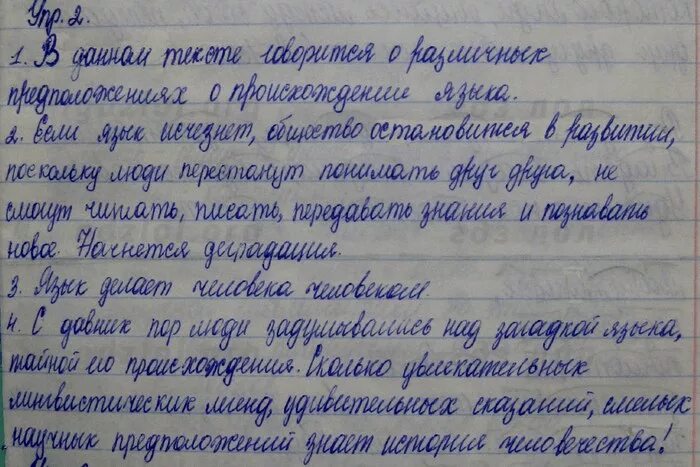 Упр. 2.
1. В данном тексте говорится о различных
предположениях о происхождении языка.
2. Если язык исчезнет, общество остановится в развитии,
поскольку люди перестанут понимать друг друга, не
смогут читать, писать, передавать знания и познавать
новое. Начнется деградация.
3. Язык делает человека человеком.
4. С давних пор люди задумывались над загадкой языка,
тайной его происхождения. Сколько увлекательных
лингвистических легенд, удивительных сказаний, смелых
научных предположений знает история человечества!